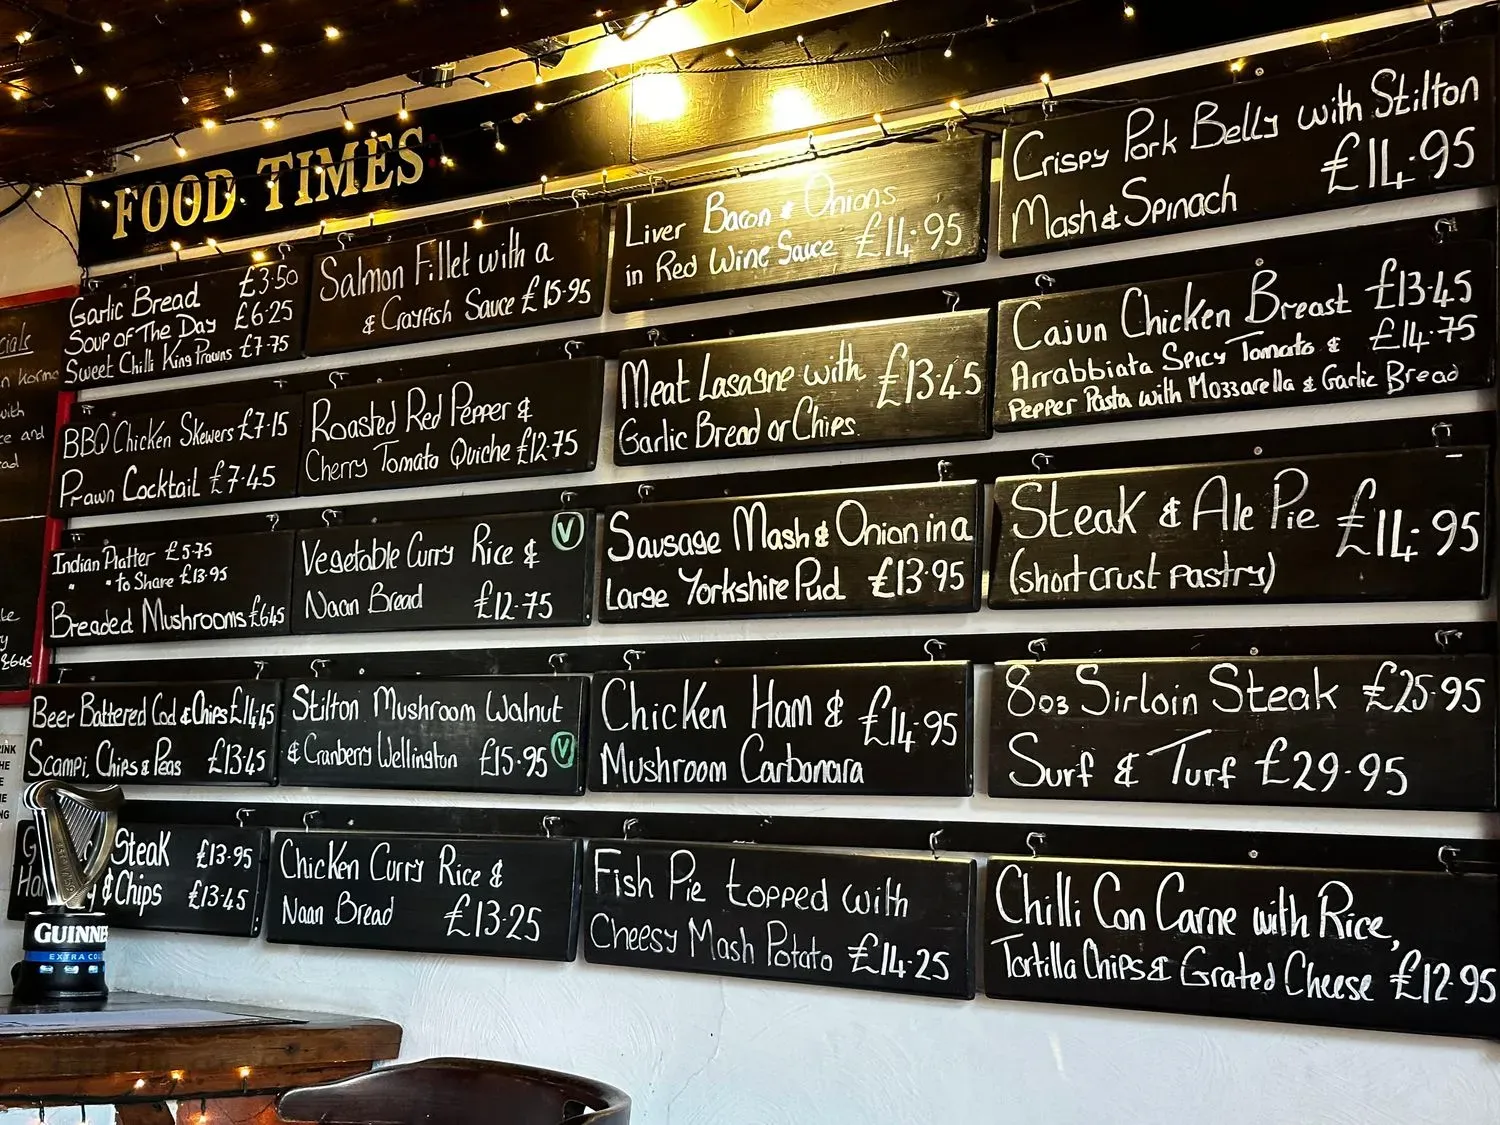 FOOD TIMES
Garlic Bread £3.50
Soup of The Day £6.25
Sweet Chilli King Prawns £7.75
BBQ Chicken Skewers £7.15
Prawn Cocktail £7.45
Indian Platter £5.75
" " to Share £13.95
Breaded Mushrooms £6.45
Beer Battered Cod & Chips £14.45
Scampi, Chips & Peas £13.45
Steak £13.95
& Chips £13.45
Salmon Fillet with a
& Crayfish Sauce £15.95
Roasted Red Pepper &
Cherry Tomato Quiche £12.75
Vegetable Curry Rice & V
Naan Bread £12.75
Stilton Mushroom Walnut
& Cranberry Wellington £15.95 V
Chicken Curry Rice &
Naan Bread £13.25
Liver Bacon & Onions
in Red Wine Sauce £14.95
Meat Lasagne with £13.45
Garlic Bread or Chips.
Sausage Mash & Onion in a
Large Yorkshire Pud £13.95
Chicken Ham & £14.95
Mushroom Carbonara
Fish Pie topped with
Cheesy Mash Potato £14.25
Crispy Pork Belly with Stilton
Mash & Spinach £14.95
Cajun Chicken Breast £13.45
Arrabbiata Spicy Tomato & £14.75
Pepper Pasta with Mozzarella & Garlic Bread
Steak & Ale Pie £14.95
(shortcrust pastry)
8oz Sirloin Steak £25.95
Surf & Turf £29.95
Chilli Con Carne with Rice,
Tortilla Chips & Grated Cheese £12.95
with
and
£6.45
GUINNE
EXTRA CO